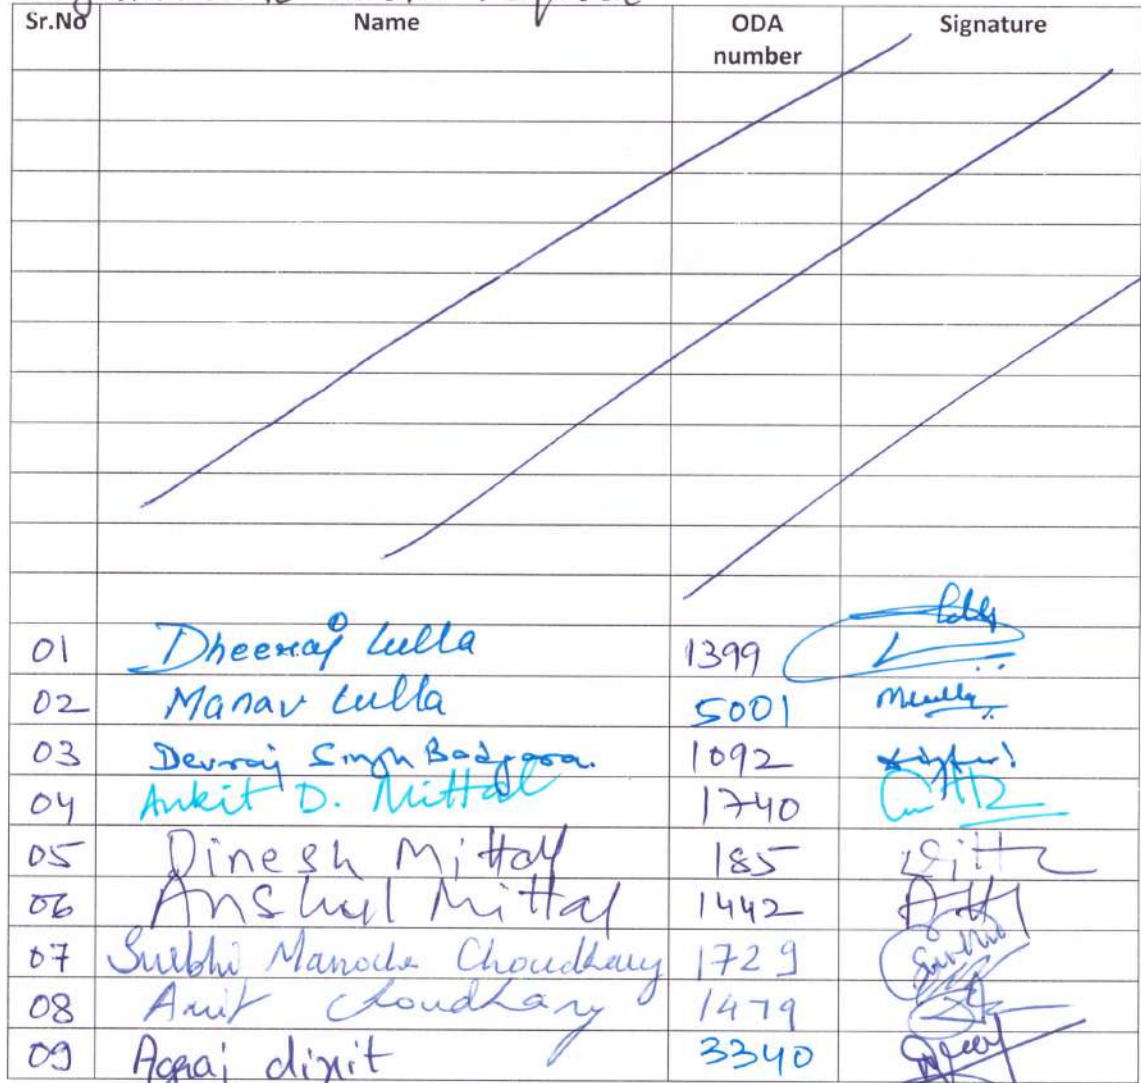 Sr.No Name ODA number Signature
01 Dheeraj Lulla 1399
02 Manav Lulla 5001
03 Devraj Singh 1092
04 Ankit D. Mittal 1740
05 Dinesh Mittal 185
06 Anshul Mittal 1442
07 Surbhi Choudhary 1729
08 Amit Choudhary 1479
09 Agraj dixit 3340